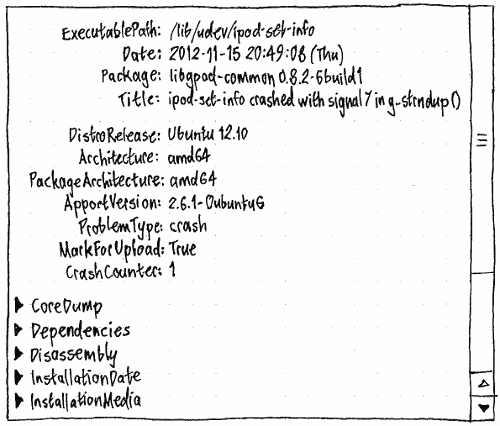 ExecutablePath: /lib/udev/ipod-set-info
Date: 2012-11-15 20:49:08 (Thu)
Package: libgpod-common 0.8.2-6build1
Title: ipod-set-info crashed with signal 7 in g_strndup()
DistroRelease: Ubuntu 12.10
Architecture: amd64
PackageArchitecture: amd64
ApportVersion: 2.6.1-0ubuntu6
ProblemType: crash
MarkForUpload: True
CrashCounter: 1
CoreDump
Dependencies
Disassembly
InstallationDate
InstallationMedia